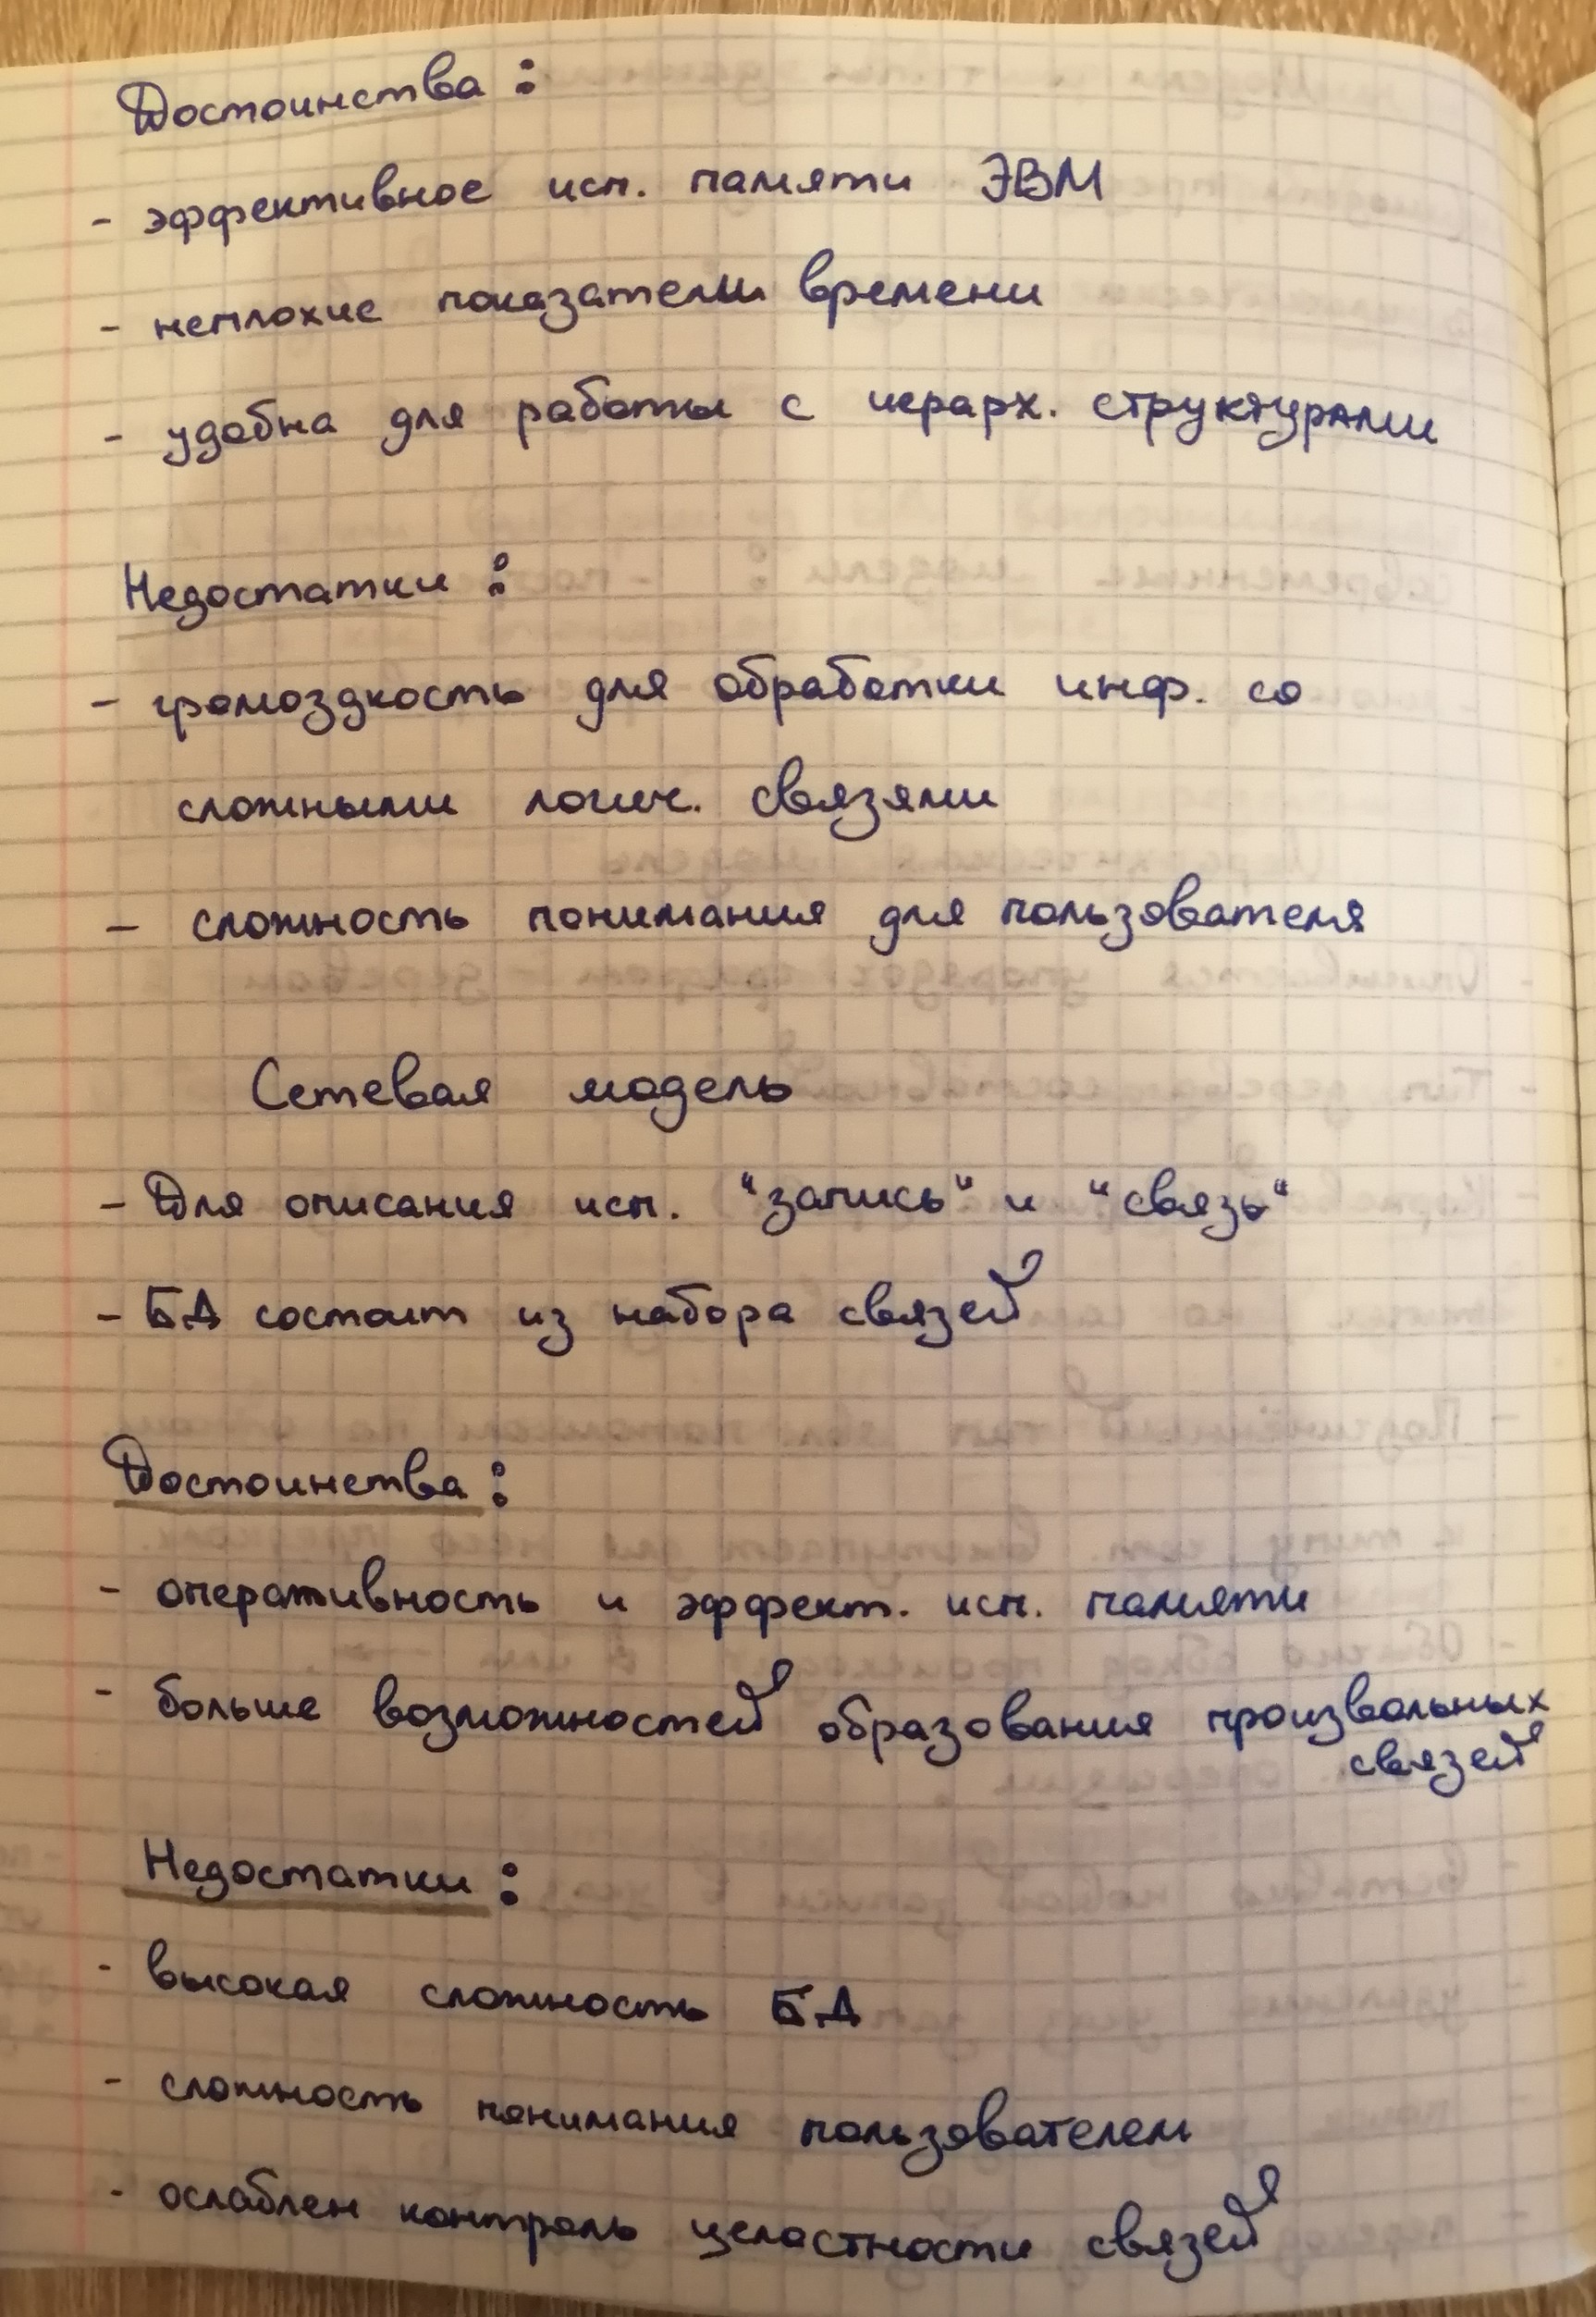 Достоинства:
- эффективное исп. памяти ЭВМ
- неплохие показатели времени
- удобна для работы с иерарх. структурами
Недостатки:
- громоздкость для обработки инф. со
сложными логич. связями
- сложность понимания для пользователя
Сетевая модель
- Для описания исп. "запись" и "связь"
- БД состоит из набора связей
Достоинства:
- оперативность и эффект. исп. памяти
- больше возможностей образования произвольных
связей
Недостатки:
- высокая сложность БД
- сложность понимания пользователем
- ослаблен контроль целостности связей